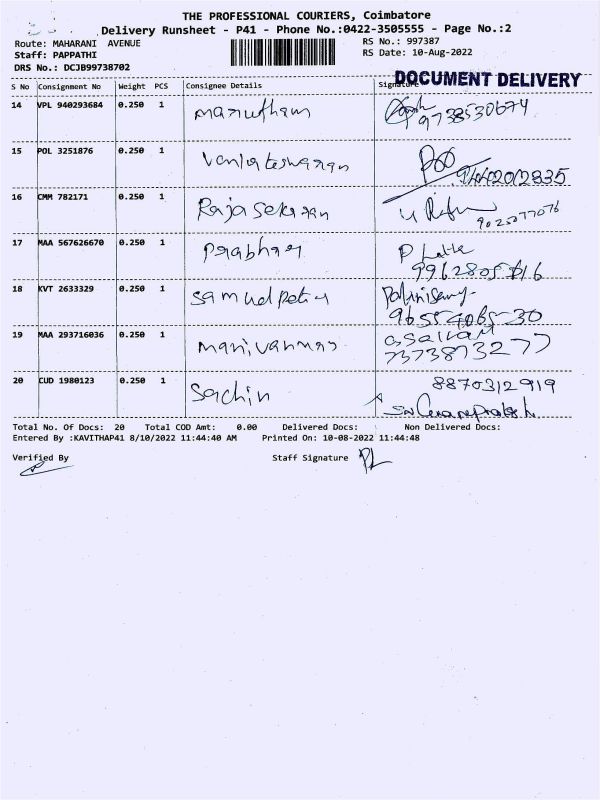 THE PROFESSIONAL COURIERS, Coimbatore
Delivery Runsheet - P41 - Phone No.:0422-3505555 - Page No.:2
Route: MAHARANI AVENUE
RS No.: 997387
Staff: PAPPATHI
RS Date: 10-Aug-2022
DRS No.: DCJB99738702
DOCUMENT DELIVERY
S No Consignment No Weight PCS Consignee Details Signature
14 VPL 940293684 0.250 1 marutham 9738530674
15 POL 3251876 0.250 1
16 CMM 782171 0.250 1 Rajasekaran
9025077076
17 MAA 567626670 0.250 1 Prabhar P Latha
18 KVT 2633329 0.250 1 Palanisamy
19 MAA 293716036 0.250 1 manivannan
7373873277
20 CUD 1980123 0.250 1 Sachin 8870312919
Total No. Of Docs: 20 Total COD Amt: 0.00 Delivered Docs: Non Delivered Docs:
Entered By :KAVITHAP41 8/10/2022 11:44:40 AM Printed On: 10-08-2022 11:44:48
Verified By Staff Signature PL